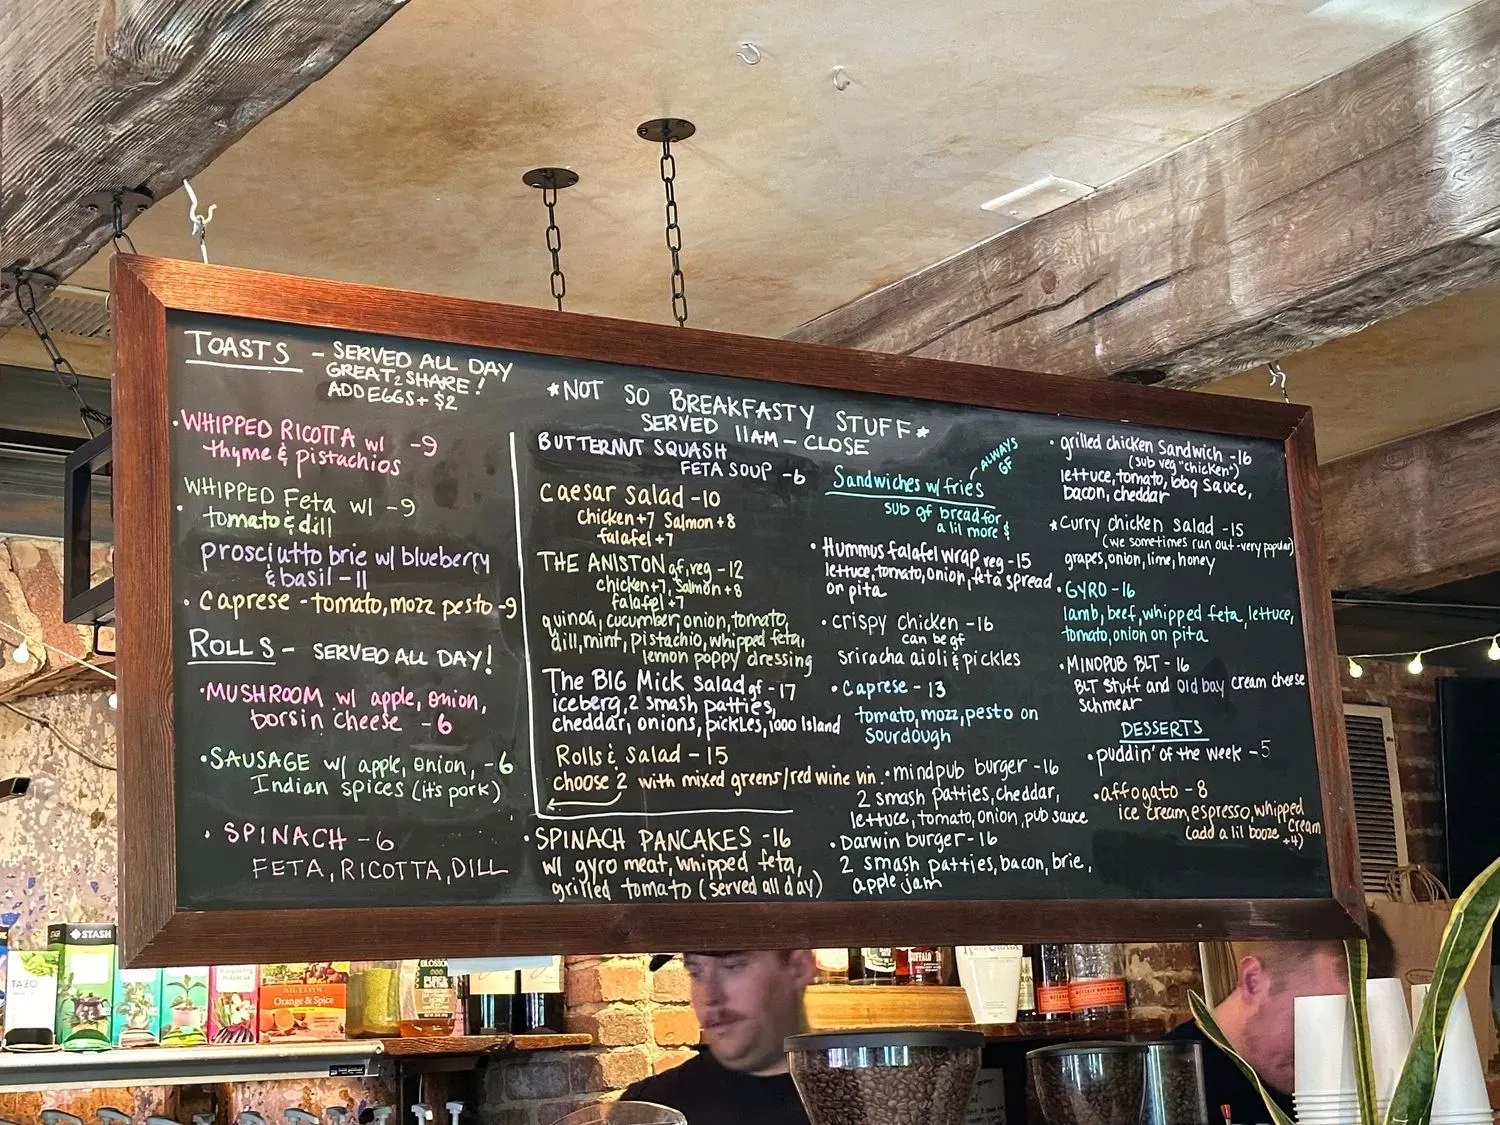 TOASTS - SERVED ALL DAY
GREAT 2 SHARE!
ADD EGGS + $2
•WHIPPED RICOTTA w/ -9
thyme & pistachios
•WHIPPED Feta w/ -9
tomato & dill
prosciutto brie w/ blueberry
& basil - 11
•Caprese - tomato, mozz pesto -9
ROLLS - SERVED ALL DAY!
•MUSHROOM w/ apple, onion,
borsin cheese -6
•SAUSAGE w/ apple, onion, -6
Indian spices (it's pork)
•SPINACH -6
FETA, RICOTTA, DILL
*NOT SO BREAKFASTY STUFF*
SERVED 11AM - CLOSE
BUTTERNUT SQUASH
FETA SOUP -6
Caesar Salad -10
Chicken +7 Salmon +8
falafel +7
THE ANISTON gf, reg -12
chicken +7, Salmon +8
falafel +7
quinoa, cucumber, onion, tomato,
dill, mint, pistachio, whipped feta,
lemon poppy dressing
The BIG Mick Salad gf - 17
iceberg, 2 smash patties,
cheddar, onions, pickles, 1000 Island
Rolls & Salad - 15
choose 2 with mixed greens/red wine vin
•SPINACH PANCAKES -16
w/ gyro meat, whipped feta,
grilled tomato (served all day)
ALWAYS
GF
Sandwiches w/ fries
sub gf bread for
a lil more $
•Hummus falafel wrap reg - 15
lettuce, tomato, onion, feta spread
on pita
•crispy chicken - 16
can be gf
sriracha aioli & pickles
•Caprese - 13
tomato, mozz, pesto on
Sourdough
•mindpub burger - 16
2 smash patties, cheddar,
lettuce, tomato, onion, pub sauce
•Darwin burger - 16
2 smash patties, bacon, brie,
apple jam
•grilled chicken Sandwich - 16
(sub veg "chicken")
lettuce, tomato, bbq sauce,
bacon, cheddar
*Curry chicken salad -15
(we sometimes run out - very popular)
grapes, onion, lime, honey
•GYRO - 16
lamb, beef, whipped feta, lettuce,
tomato, onion on pita
•MINDPUB BLT - 16
BLT stuff and old bay cream cheese
schmear
DESSERTS
•puddin' of the week - 5
•affogato - 8
ice cream, espresso, whipped
cream
(add a lil booze +4)
STASH
TAZO
Orange & Spice
BUFFALO